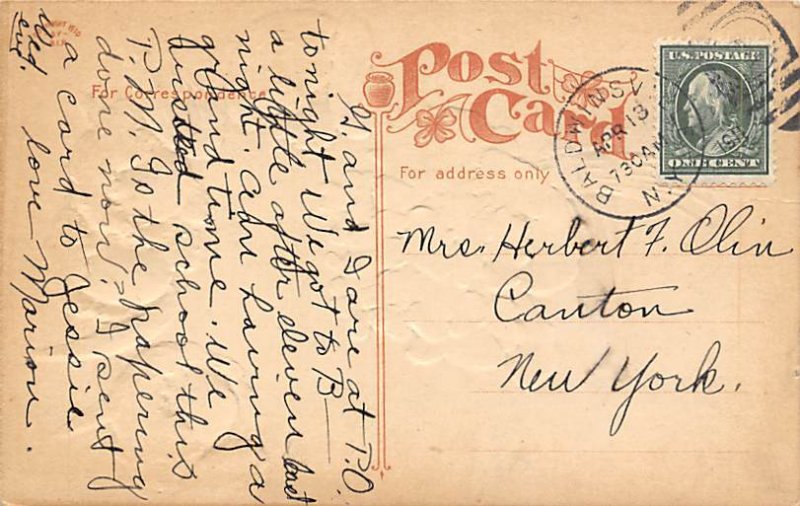 Post
Card
For Correspondence
For address only
U.S. POSTAGE
ONE CENT
BALDWINSVILLE
APR 13
730 AM
N.Y.
Mrs. Herbert F. Olin
Canton
New York.
G. and I are at P.O.
tonight. We got to B—
a little after eleven last
night. Am having a
grand time. We
visited school this
P.M. Is the papering
done now? - I sent
a card to Jessie
Wed.
eve.
love Marion.